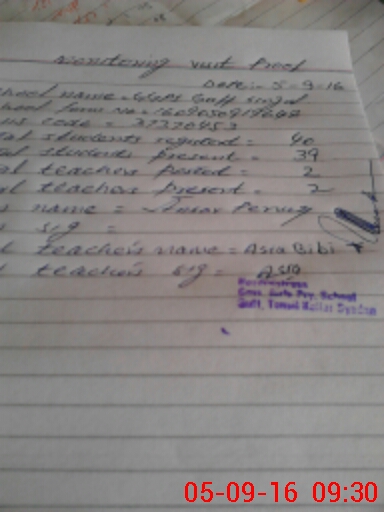 Monitoring visit Proof
Date:- 5-9-16
hool name = GGPS Guff
hool form No =
us code = 37370453
al students registed = 40
al students present = 39
al teachers posted = 2
al teachers present = 2
s name =
s sig =
l teacher's name = Asia Bibi
l teacher's sig = Asia
Headmistress
Govt. Girls Pry. School
Guff, Tehsil Kallar Syedan
05-09-16 09:30